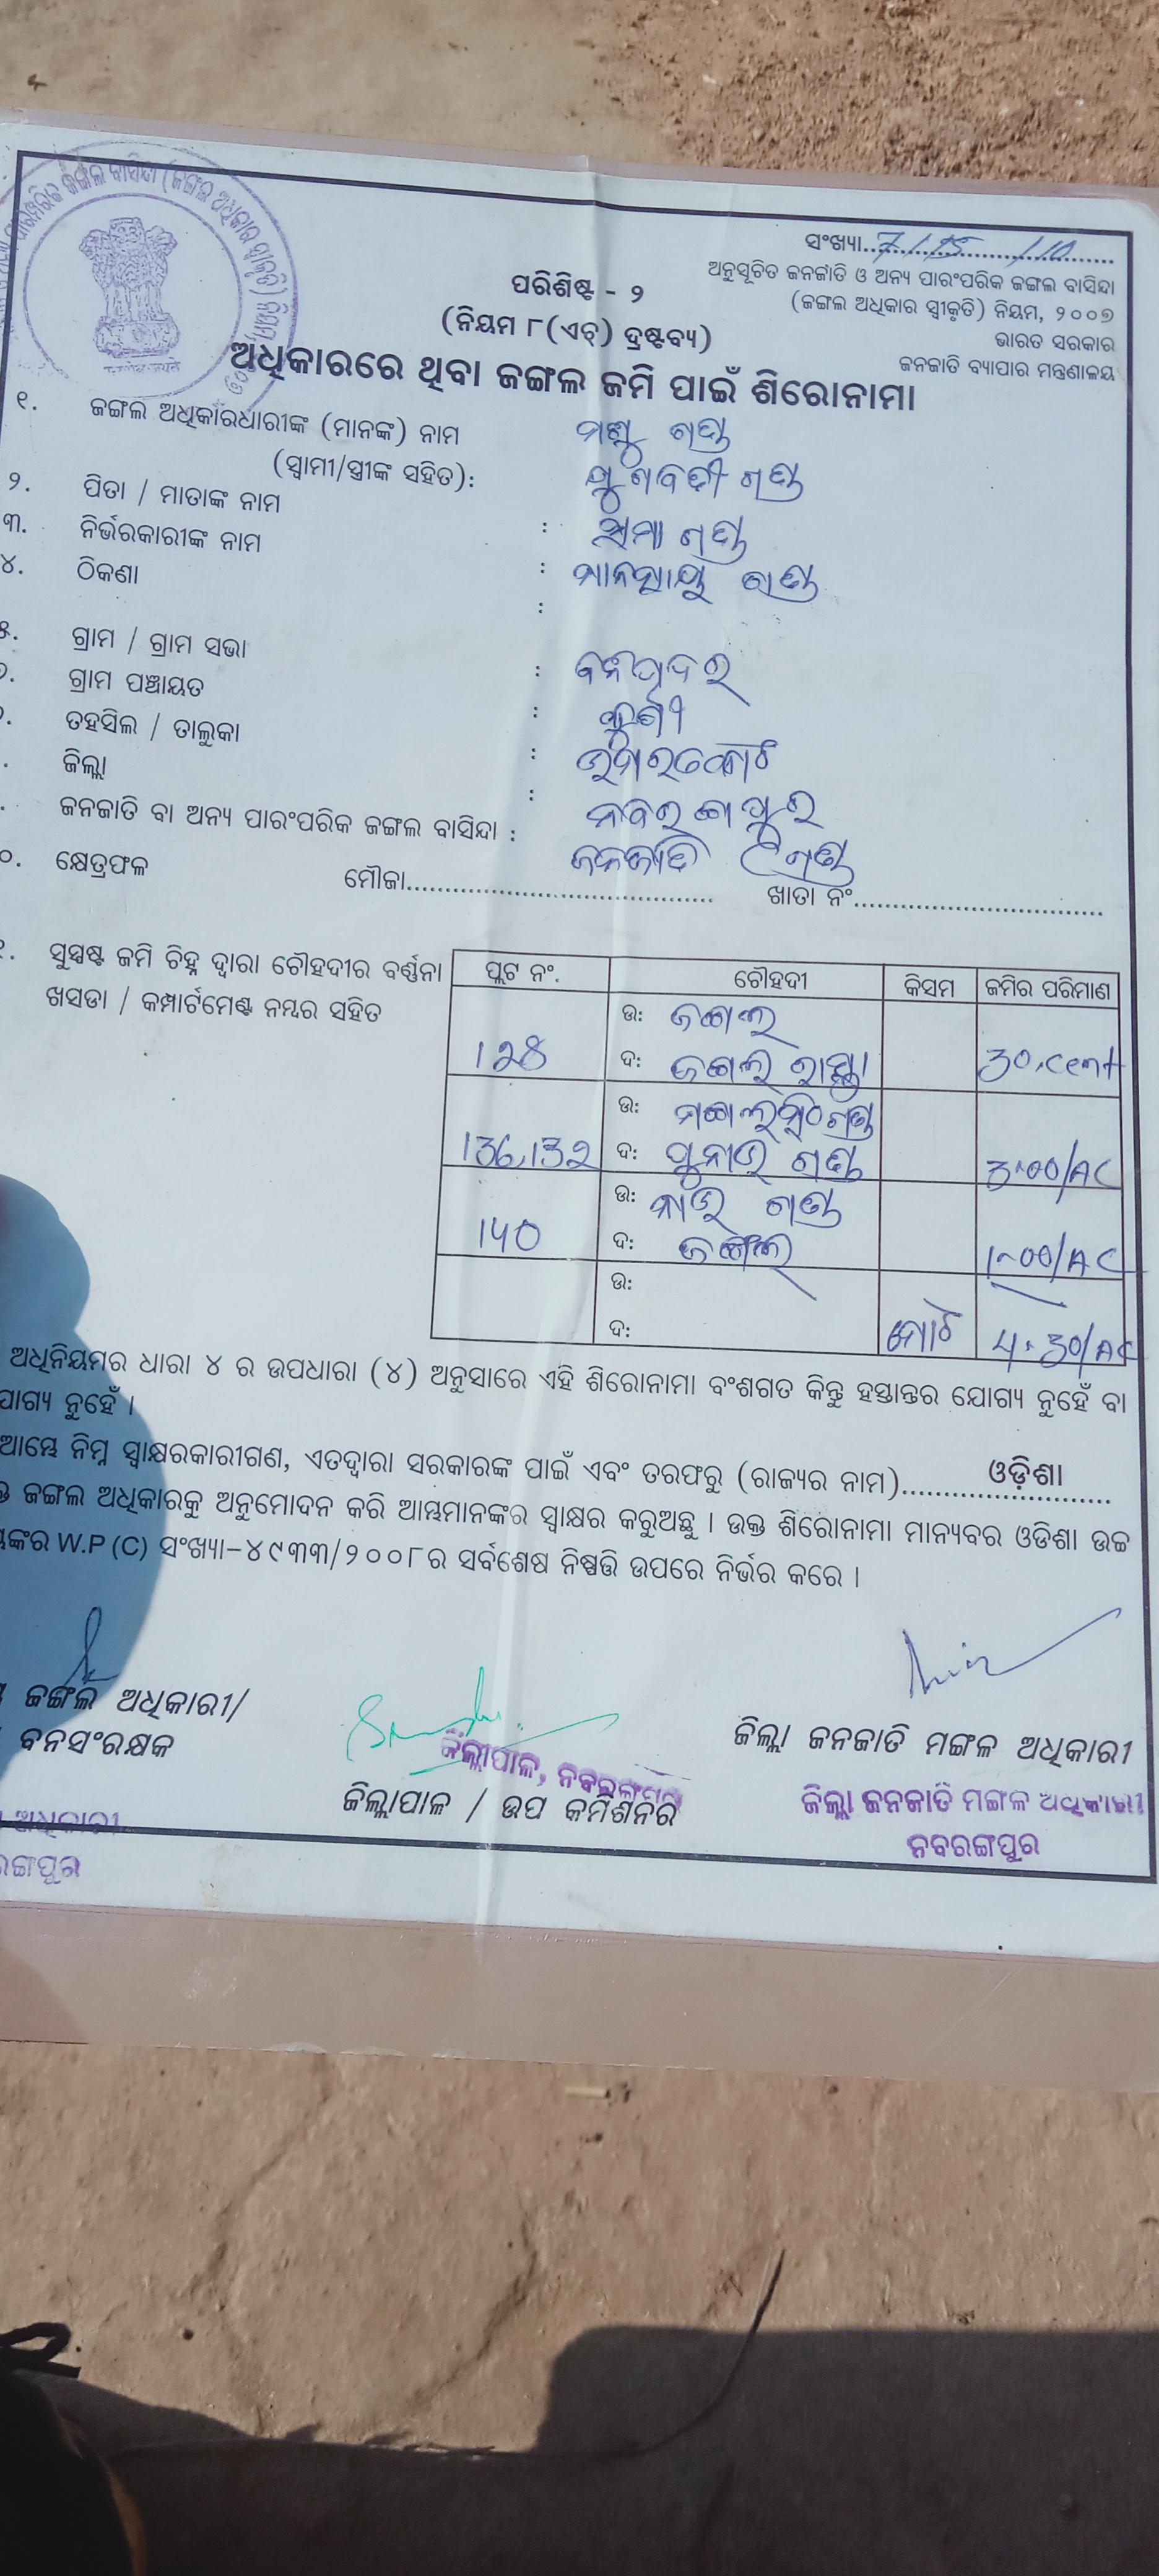 ସଂଖ୍ୟା..7/15/10
ଅନୁସୂଚିତ ଜନଜାତି ଓ ଅନ୍ୟ ପାରଂପରିକ ଜଙ୍ଗଲ ବାସିନ୍ଦା
(ଜଙ୍ଗଲ ଅଧିକାର ସ୍ୱୀକୃତି) ନିୟମ, ୨୦୦୭
ଭାରତ ସରକାର
ଜନଜାତି ବ୍ୟାପାର ମନ୍ତ୍ରଣାଳୟ
ପରିଶିଷ୍ଟ - ୨
(ନିୟମ ୮(ଏଚ୍) ଦ୍ରଷ୍ଟବ୍ୟ)
ଅଧିକାରରେ ଥିବା ଜଙ୍ଗଲ ଜମି ପାଇଁ ଶିରୋନାମା
୧. ଜଙ୍ଗଲ ଅଧିକାରଧାରୀଙ୍କ (ମାନଙ୍କ) ନାମ ଗଣ୍ଡ
(ସ୍ୱାମୀ/ସ୍ତ୍ରୀଙ୍କ ସହିତ): ଗଣ୍ଡ
୨. ପିତା / ମାତାଙ୍କ ନାମ : ଗଣ୍ଡ
୩. ନିର୍ଭରକାରୀଙ୍କ ନାମ : ଗଣ୍ଡ
୪. ଠିକଣା :
୫. ଗ୍ରାମ / ଗ୍ରାମ ସଭା :
ଗ୍ରାମ ପଞ୍ଚାୟତ :
ତହସିଲ / ତାଲୁକା : ଉମରକୋଟ
ଜିଲ୍ଲା : ନବରଙ୍ଗପୁର
ଜନଜାତି ବା ଅନ୍ୟ ପାରଂପରିକ ଜଙ୍ଗଲ ବାସିନ୍ଦା : ଜନଜାତି
୦. କ୍ଷେତ୍ରଫଳ ମୌଜା.......... ଖାତା ନଂ..........
ସୁସ୍ପଷ୍ଟ ଜମି ଚିହ୍ନ ଦ୍ୱାରା ଚୌହଦୀର ବର୍ଣ୍ଣନା
ଖସଡା / କମ୍ପାର୍ଟମେଣ୍ଟ ନମ୍ବର ସହିତ
ପ୍ଲଟ ନଂ. ଚୌହଦୀ କିସମ ଜମିର ପରିମାଣ
ଉ: ଜଙ୍ଗଲ
128 ଦ: ଜଙ୍ଗଲ ରାସ୍ତା 30,cent
ଉ: ଗଣ୍ଡ
136,132 ଦ: ଗଣ୍ଡ 3.00/AC
ଉ: ଗଣ୍ଡ
140 ଦ: ଜଙ୍ଗଲ 1-00/AC
ଉ:
ଦ: ମୋଟ 4.30/AC
ଅଧିନିୟମର ଧାରା ୪ ର ଉପଧାରା (୪) ଅନୁସାରେ ଏହି ଶିରୋନାମା ବଂଶଗତ କିନ୍ତୁ ହସ୍ତାନ୍ତର ଯୋଗ୍ୟ ନୁହେଁ ବା
ଯୋଗ୍ୟ ନୁହେଁ ।
ଆମ୍ଭେ ନିମ୍ନ ସ୍ୱାକ୍ଷରକାରୀଗଣ, ଏତଦ୍ୱାରା ସରକାରଙ୍କ ପାଇଁ ଏବଂ ତରଫରୁ (ରାଜ୍ୟର ନାମ)..........ଓଡ଼ିଶା
ଜଙ୍ଗଲ ଅଧିକାରକୁ ଅନୁମୋଦନ କରି ଆମ୍ଭମାନଙ୍କର ସ୍ୱାକ୍ଷର କରୁଅଛୁ । ଉକ୍ତ ଶିରୋନାମା ମାନ୍ୟବର ଓଡିଶା ଉଚ୍ଚ
W.P (C) ସଂଖ୍ୟା-୪୯୩୩/୨୦୦୮ର ସର୍ବଶେଷ ନିଷ୍ପତ୍ତି ଉପରେ ନିର୍ଭର କରେ ।
ଜଙ୍ଗଲ ଅଧିକାରୀ/
ବନସଂରକ୍ଷକ
ଅଧିକାରୀ
ଜିଲ୍ଲାପାଳ, ନବରଙ୍ଗପୁର
ଜିଲ୍ଲାପାଳ / ଉପ କମିଶନର
ଜିଲ୍ଲା ଜନଜାତି ମଙ୍ଗଳ ଅଧିକାରୀ
ଜିଲ୍ଲା ଜନଜାତି ମଙ୍ଗଳ ଅଧିକାରୀ
ନବରଙ୍ଗପୁର